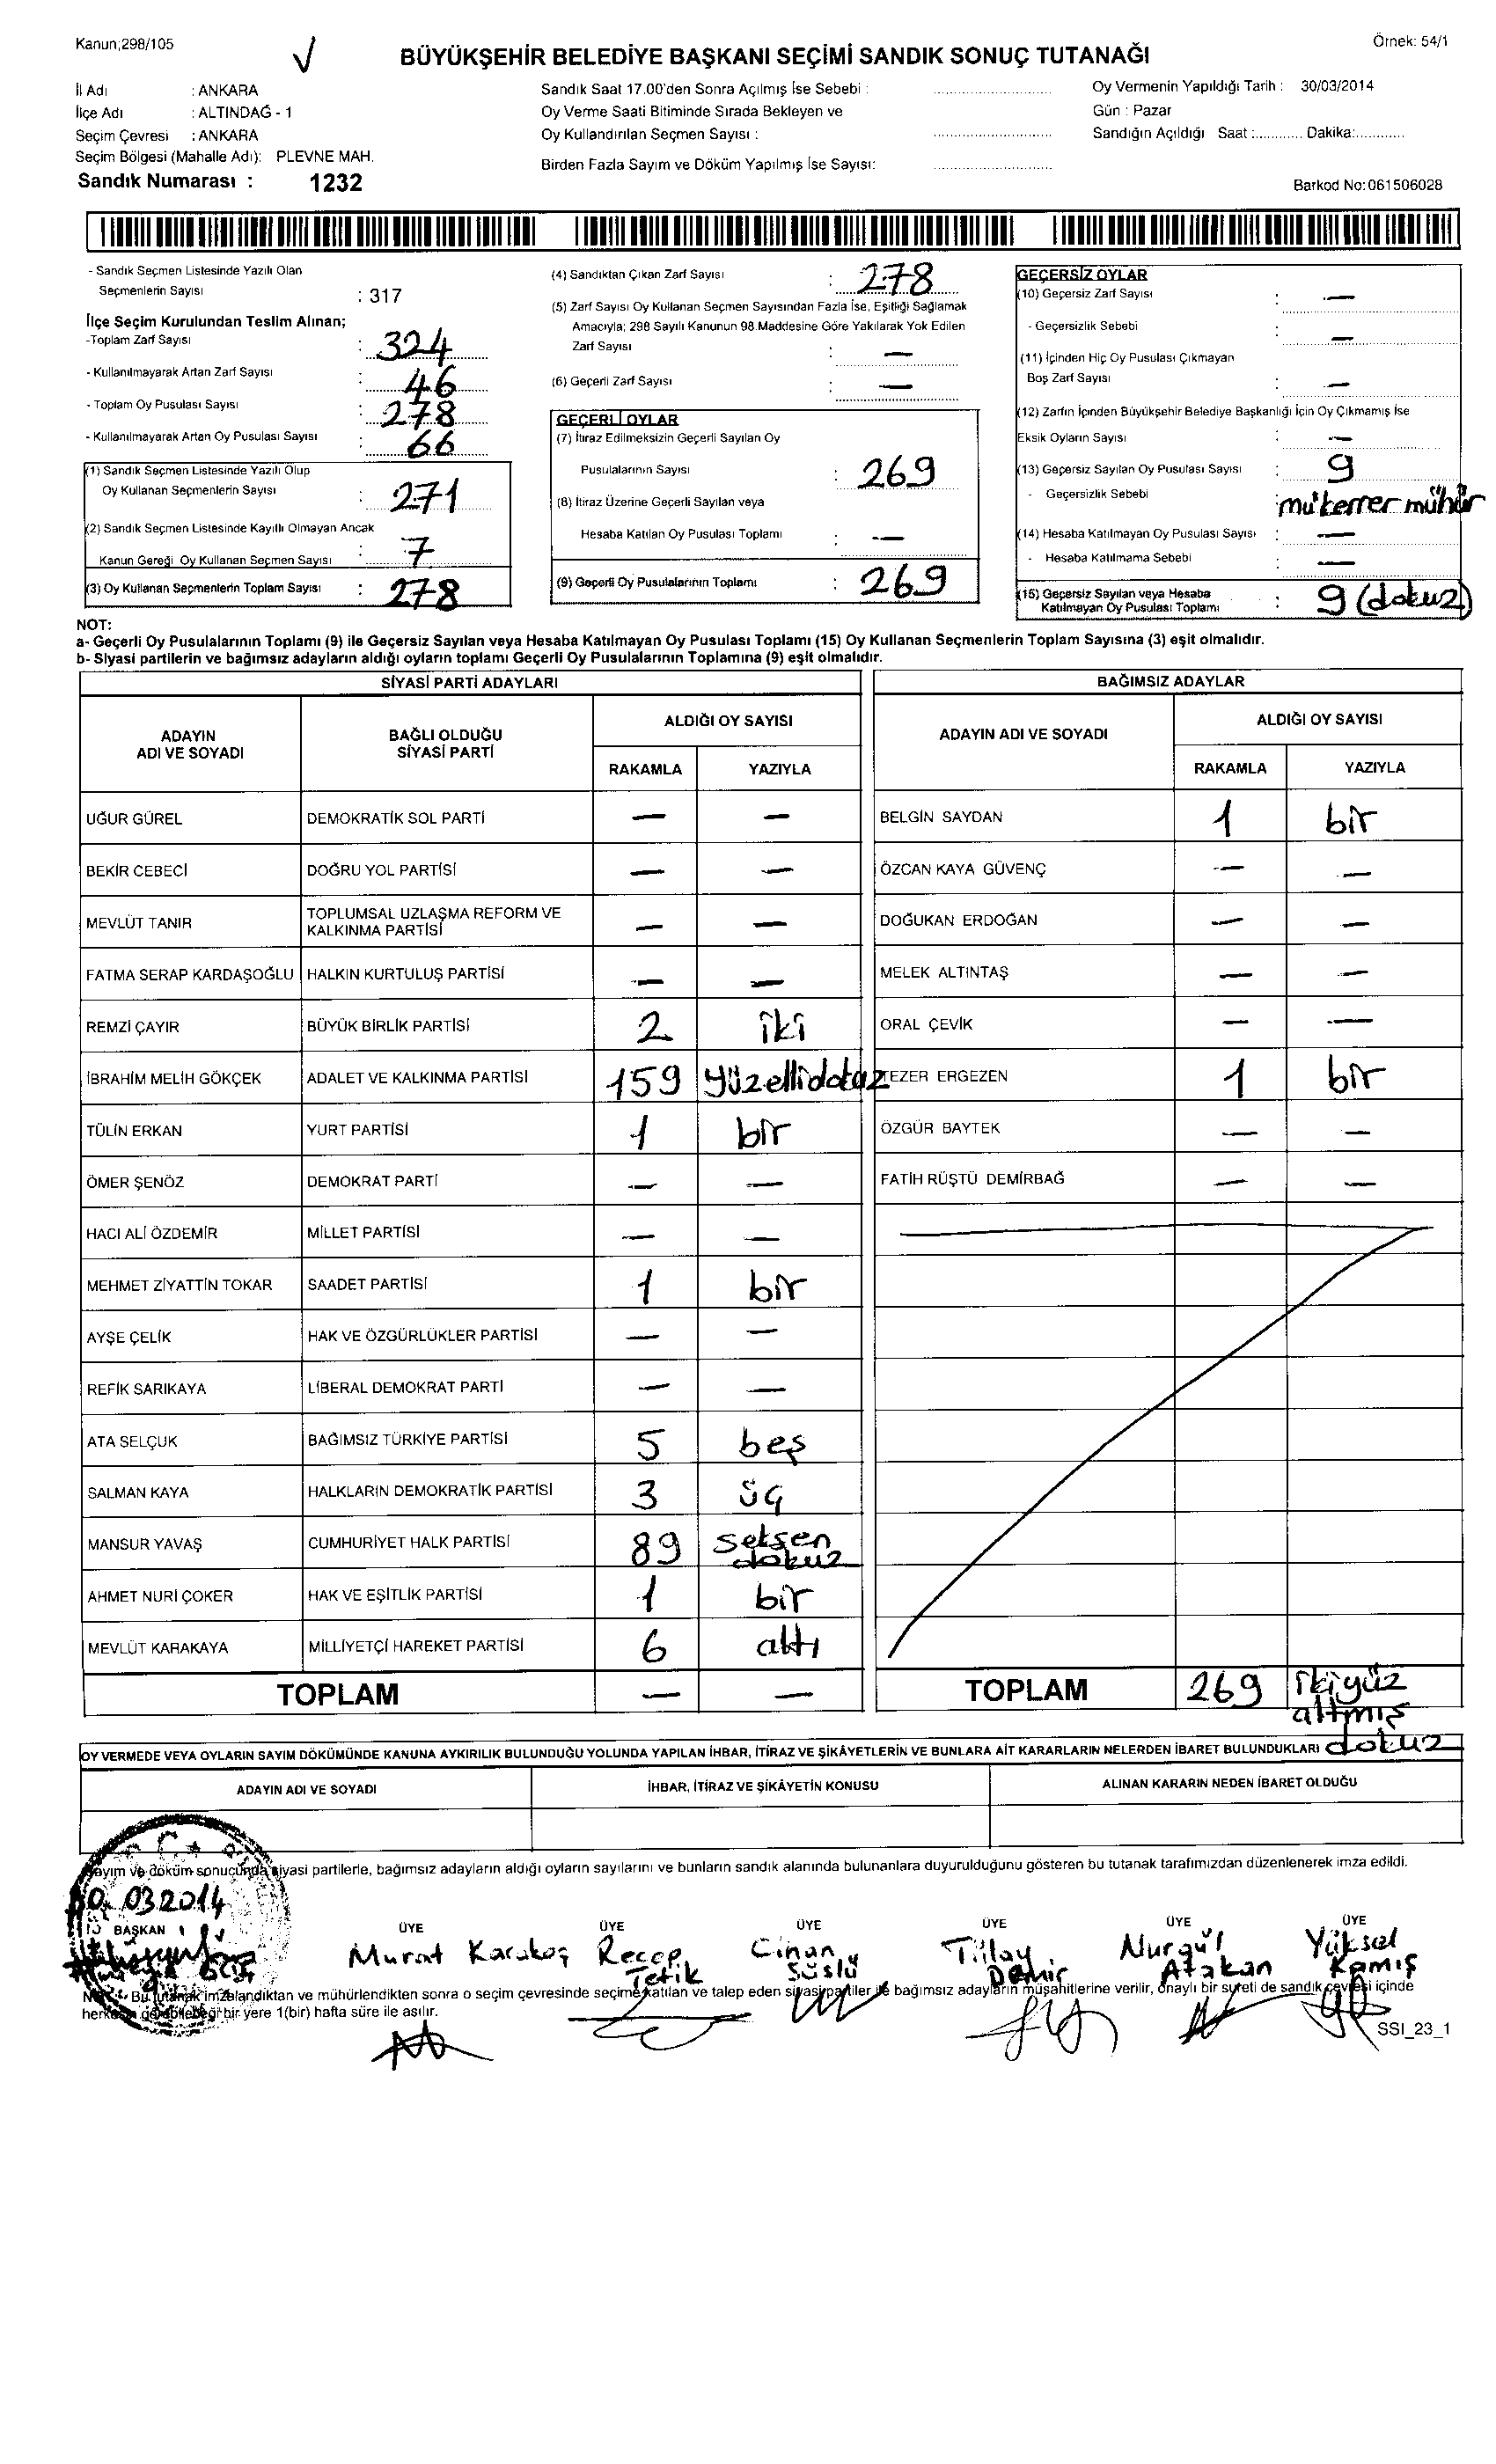 Kanun;298/105
√
BÜYÜKŞEHİR BELEDİYE BAŞKANI SEÇİMİ SANDIK SONUÇ TUTANAĞI
Örnek: 54/1
İl Adı : ANKARA
İlçe Adı : ALTINDAĞ - 1
Seçim Çevresi : ANKARA
Seçim Bölgesi (Mahalle Adı): PLEVNE MAH.
Sandık Numarası : 1232
Sandık Saat 17.00'den Sonra Açılmış İse Sebebi : ..............................
Oy Verme Saati Bitiminde Sırada Bekleyen ve
Oy Kullandırılan Seçmen Sayısı : ..............................
Birden Fazla Sayım ve Döküm Yapılmış İse Sayısı: ..............................
Oy Vermenin Yapıldığı Tarih : 30/03/2014
Gün : Pazar
Sandığın Açıldığı Saat :............ Dakika:............
Barkod No:061506028
- Sandık Seçmen Listesinde Yazılı Olan
Seçmenlerin Sayısı : 317
İlçe Seçim Kurulundan Teslim Alınan;
-Toplam Zarf Sayısı : 324
- Kullanılmayarak Artan Zarf Sayısı : 46
- Toplam Oy Pusulası Sayısı : 278
- Kullanılmayarak Artan Oy Pusulası Sayısı : 66
(1) Sandık Seçmen Listesinde Yazılı Olup
Oy Kullanan Seçmenlerin Sayısı : 271
(2) Sandık Seçmen Listesinde Kayıllı Olmayan Ancak
Kanun Gereği Oy Kullanan Seçmen Sayısı : 7
(3) Oy Kullanan Seçmenlerin Toplam Sayısı : 278
(4) Sandıktan Çıkan Zarf Sayısı : 278
(5) Zarf Sayısı Oy Kullanan Seçmen Sayısından Fazla İse, Eşitliği Sağlamak
Amacıyla; 298 Sayılı Kanunun 98.Maddesine Göre Yakılarak Yok Edilen
Zarf Sayısı : —
(6) Geçerli Zarf Sayısı : —
GEÇERLİ OYLAR
(7) İtiraz Edilmeksizin Geçerli Sayılan Oy
Pusulalarının Sayısı : 269
(8) İtiraz Üzerine Geçerli Sayılan veya
Hesaba Katılan Oy Pusulası Toplamı : —
(9) Geçerli Oy Pusulalarının Toplamı : 269
GEÇERSİZ OYLAR
(10) Geçersiz Zarf Sayısı : —
- Geçersizlik Sebebi : —
(11) İçinden Hiç Oy Pusulası Çıkmayan
Boş Zarf Sayısı : —
(12) Zarfın İçınden Büyükşehir Belediye Başkanlığı İçin Oy Çıkmamış İse
Eksik Oyların Sayısı : —
(13) Geçersiz Sayılan Oy Pusulası Sayısı : 9
- Geçersizlik Sebebi mükerrer mühür
(14) Hesaba Katılmayan Oy Pusulası Sayısı : —
- Hesaba Katılmama Sebebi : —
(15) Geçersiz Sayılan veya Hesaba
Katılmayan Oy Pusulası Toplamı : 9 (dokuz)
NOT:
a- Geçerli Oy Pusulalarının Toplamı (9) ile Geçersiz Sayılan veya Hesaba Katılmayan Oy Pusulası Toplamı (15) Oy Kullanan Seçmenlerin Toplam Sayısına (3) eşit olmalıdır.
b- Siyasi partilerin ve bağımsız adayların aldığı oyların toplamı Geçerli Oy Pusulalarının Toplamına (9) eşit olmalıdır.
SİYASİ PARTİ ADAYLARI
ADAYIN ADI VE SOYADI
BAĞLI OLDUĞU SİYASİ PARTİ
ALDIĞI OY SAYISI
RAKAMLA YAZIYLA
UĞUR GÜREL DEMOKRATİK SOL PARTİ — —
BEKİR CEBECİ DOĞRU YOL PARTİSİ — —
MEVLÜT TANIR TOPLUMSAL UZLAŞMA REFORM VE KALKINMA PARTİSİ — —
FATMA SERAP KARDAŞOĞLU HALKIN KURTULUŞ PARTİSİ — —
REMZİ ÇAYIR BÜYÜK BİRLİK PARTİSİ 2 iki
İBRAHİM MELİH GÖKÇEK ADALET VE KALKINMA PARTİSİ 159 yüzellidokuz
TÜLİN ERKAN YURT PARTİSİ 1 bir
ÖMER ŞENÖZ DEMOKRAT PARTİ — —
HACI ALİ ÖZDEMİR MİLLET PARTİSİ — —
MEHMET ZİYATTİN TOKAR SAADET PARTİSİ 1 bir
AYŞE ÇELİK HAK VE ÖZGÜRLÜKLER PARTİSİ — —
REFİK SARIKAYA LİBERAL DEMOKRAT PARTİ — —
ATA SELÇUK BAĞIMSIZ TÜRKİYE PARTİSİ 5 beş
SALMAN KAYA HALKLARIN DEMOKRATİK PARTİSİ 3 üç
MANSUR YAVAŞ CUMHURİYET HALK PARTİSİ 89 seksen dokuz
AHMET NURİ ÇOKER HAK VE EŞİTLİK PARTİSİ 1 bir
MEVLÜT KARAKAYA MİLLİYETÇİ HAREKET PARTİSİ 6 altı
TOPLAM — —
BAĞIMSIZ ADAYLAR
ADAYIN ADI VE SOYADI
ALDIĞI OY SAYISI
RAKAMLA YAZIYLA
BELGİN SAYDAN 1 bir
ÖZCAN KAYA GÜVENÇ — —
DOĞUKAN ERDOĞAN — —
MELEK ALTINTAŞ — —
ORAL ÇEVİK — —
EZER ERGEZEN 1 bir
ÖZGÜR BAYTEK — —
FATİH RÜŞTÜ DEMİRBAĞ — —
TOPLAM 269 ikiyüz altmış dokuz
OY VERMEDE VEYA OYLARIN SAYIM DÖKÜMÜNDE KANUNA AYKIRILIK BULUNDUĞU YOLUNDA YAPILAN İHBAR, İTİRAZ VE ŞİKÂYETLERİN VE BUNLARA AİT KARARLARIN NELERDEN İBARET BULUNDUKLARI
ADAYIN ADI VE SOYADI
İHBAR, İTİRAZ VE ŞİKÂYETİN KONUSU
ALINAN KARARIN NEDEN İBARET OLDUĞU
Sayım ve döküm sonucunda siyasi partilerle, bağımsız adayların aldığı oyların sayılarını ve bunların sandık alanında bulunanlara duyurulduğunu gösteren bu tutanak tarafımızdan düzenlenerek imza edildi.
30.03.2014
BAŞKAN ÜYE ÜYE ÜYE ÜYE ÜYE ÜYE
Murat Karakoç
Recep Tetik
Cihan Süslü
Tülay Demir
Nurgül Atakan
Yüksel Kamış
Bu tutanak imzalandıktan ve mühürlendikten sonra o seçim çevresinde seçime katılan ve talep eden siyasi partiler ile bağımsız adayların müşahitlerine verilir, onaylı bir sureti de sandık çevresi içinde
herkesin görebileceği bir yere 1(bir) hafta süre ile asılır.
SSI_23_1